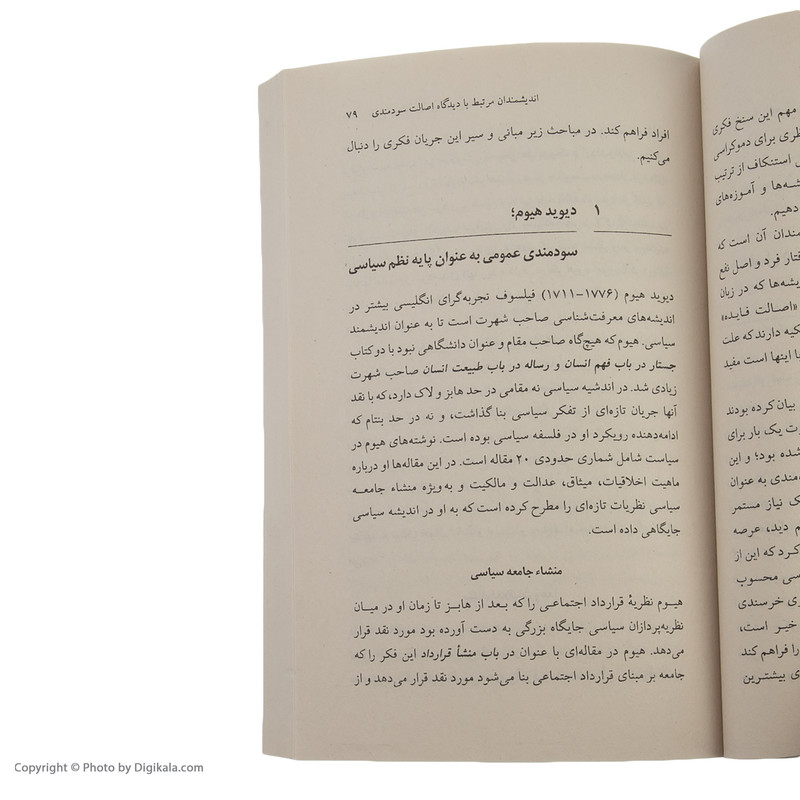 اندیشمندان مرتبط با دیدگاه اصالت سودمندی ۷۹
افراد فراهم کند. در مباحث زیر مبانی و سیر این جریان فکری را دنبال
می‌کنیم.
۱ دیوید هیوم؛
سودمندی عمومی به عنوان پایه نظم سیاسی
دیوید هیوم (۱۷۷۶-۱۷۱۱) فیلسوف تجربه‌گرای انگلیسی بیشتر در
اندیشه‌های معرفت‌شناسی صاحب شهرت است تا به عنوان اندیشمند
سیاسی. هیوم که هیچ‌گاه صاحب مقام و عنوان دانشگاهی نبود با دو کتاب
جستار در باب فهم انسان و رساله در باب طبیعت انسان صاحب شهرت
زیادی شد. در اندشیه سیاسی نه مقامی در حد هابز و لاک دارد، که با نقد
آنها جریان تازه‌ای از تفکر سیاسی بنا گذاشت، و نه در حد بنتام که
ادامه‌دهنده رویکرد او در فلسفه سیاسی بوده است. نوشته‌های هیوم در
سیاست شامل شماری حدودی ۲۰ مقاله است. در این مقاله‌ها او درباره
ماهیت اخلاقیات، میثاق، عدالت و مالکیت و به‌ویژه منشاء جامعه
سیاسی نظریات تازه‌ای را مطرح کرده است که به او در اندیشه سیاسی
جایگاهی داده است.
منشاء جامعه سیاسی
هیوم نظریهٔ قرارداد اجتماعی را که بعد از هابز تا زمان او در میان
نظریه‌پردازان سیاسی جایگاه بزرگی به دست آورده بود مورد نقد قرار
می‌دهد. هیوم در مقاله‌ای با عنوان در باب منشأ قرارداد این فکر را که
جامعه بر مبنای قرارداد اجتماعی بنا می‌شود مورد نقد قرار می‌دهد و از
مهم این سنخ فکری
ظری برای دموکراسی
ی استنکاف از ترتیب
شه‌ها و آموزه‌های
دهیم.
مندان آن است که
فتار فرد و اصل نفع
یشه‌ها که در زبان
«اصالت فایده»
کیه دارند که علت
ا اینها است مفید
بیان کرده بودند
وت یک بار برای
شده بود؛ و این
مندی به عنوان
ک نیاز مستمر
م دید، عرصه
کرد که این از
سی محسوب
ی خرسندی
خیر است،
را فراهم کند
ی بیشترین
Copyright © Photo by Digikala.com